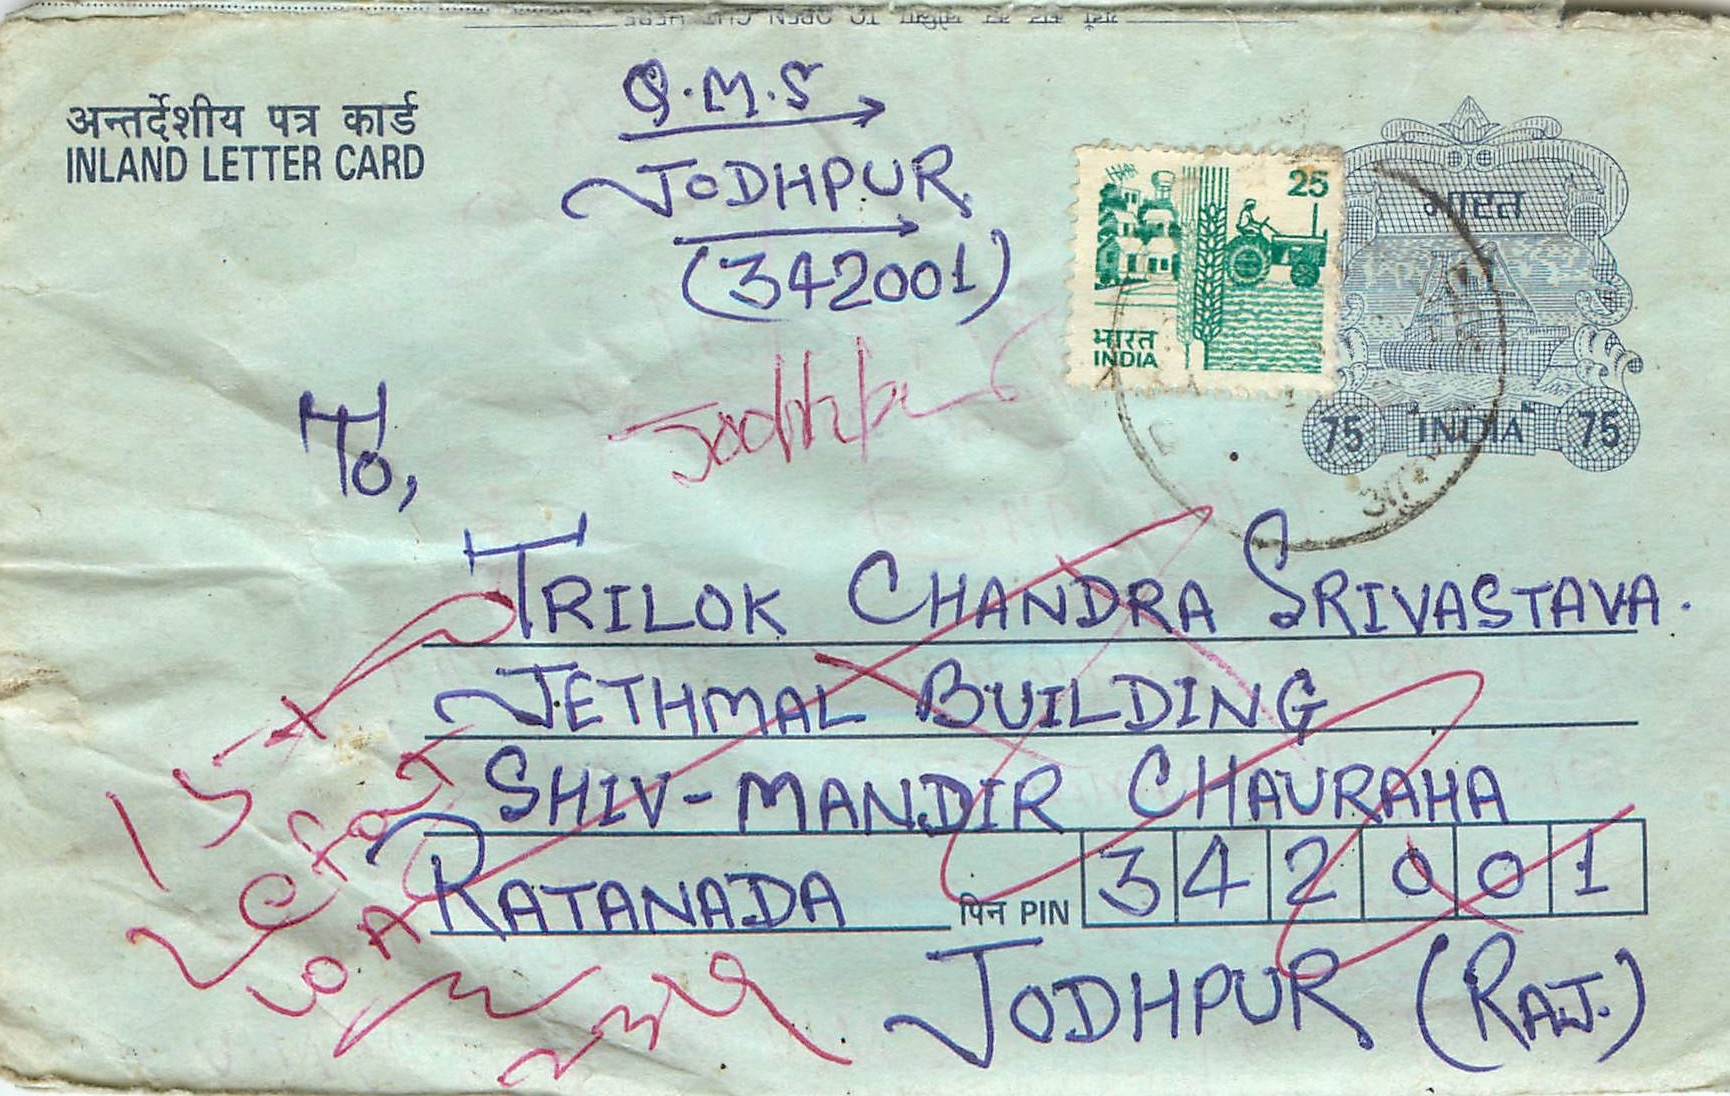 अन्तर्देशीय पत्र कार्ड
INLAND LETTER CARD
Q.M.S
JODHPUR.
(342001)
25
भारत
INDIA
भारत
75 INDIA 75
Jodhpur
To,
TRILOK CHANDRA SRIVASTAVA.
JETHMAL BUILDING
SHIV-MANDIR CHAURAHA
RATANADA पिन PIN 342001
JODHPUR (RAJ.)